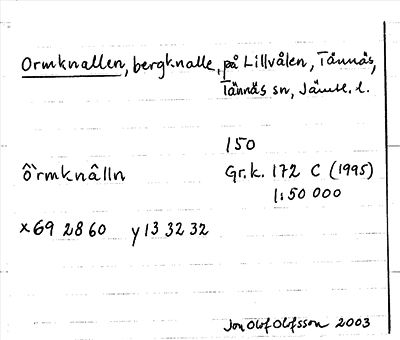 Ormknallen, bergknalle, på Lillvålen, Tännäs,
Tännäs sn, Jämtl. l.
150
ô`rmknâlln
Gr.k. 172 C (1995)
1:50 000
x69 28 60 y 13 32 32
Jon Olof Olofsson 2003